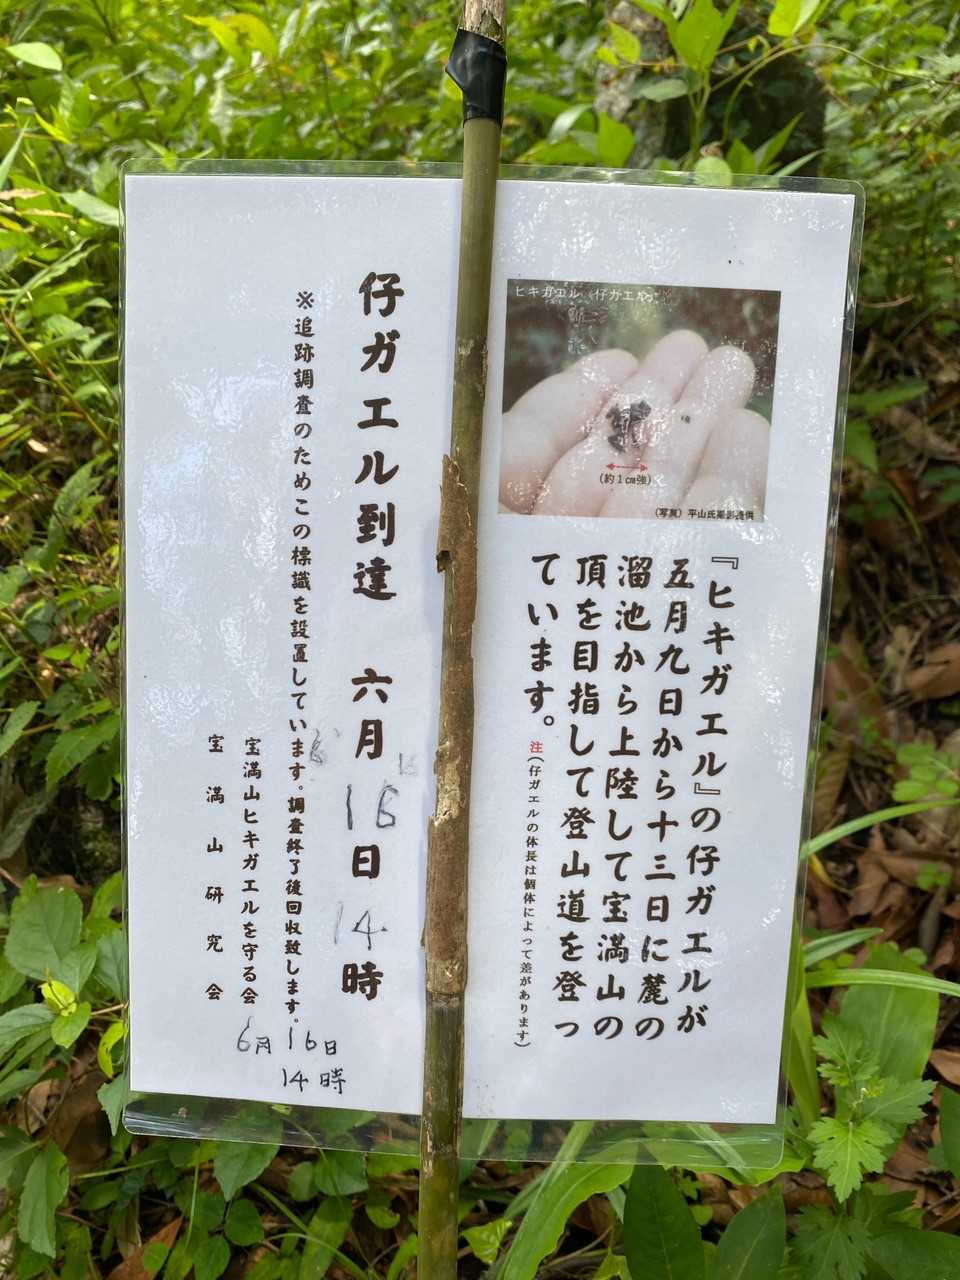 ヒキガエル（仔ガエル）
（約１㎝強）
（写真）平山氏撮影提供
『ヒキガエル』の仔ガエルが
五月九日から十三日に麓の
溜池から上陸して宝満山の
頂を目指して登山道を登っ
ています。
注（仔ガエルの体長は個体によって差があります）
仔ガエル到達　六月16日14時
※追跡調査のためこの標識を設置しています。調査終了後回収致します。
宝満山ヒキガエルを守る会
宝満山研究会
6月16日
14時